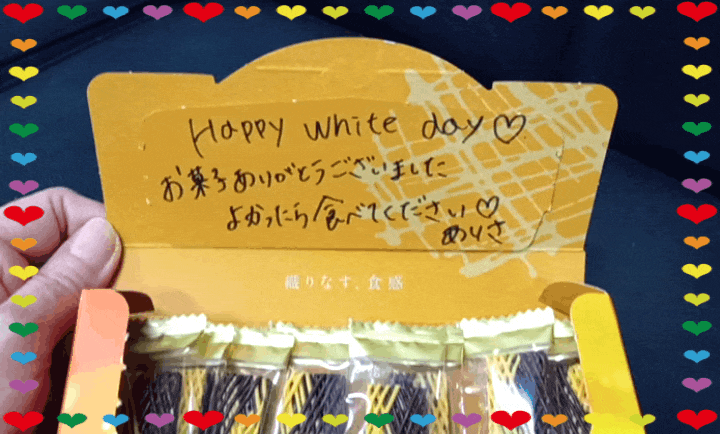 Happy white day♡
お菓子ありがとうございました
よかったら食べてください♡
ありさ
織りなす、食感